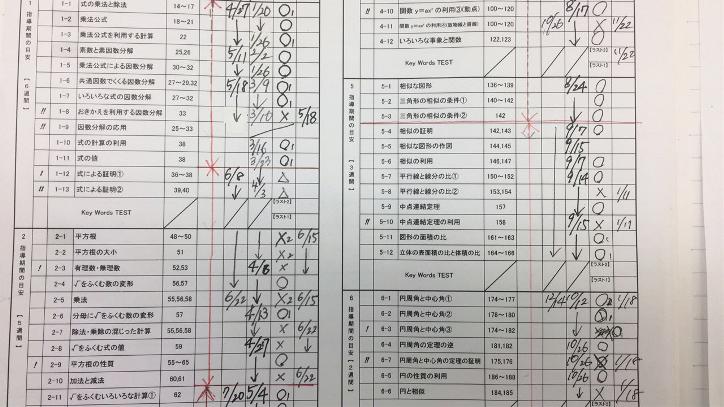 1
指導期間の目安
【6週間】
1-1 式の乗法と除法 14~17 4/27 1/20 O1
1-2 乗法公式 18~21
1-3 乗法公式を利用する計算 22 1/26
1-4 素数と素因数分解 25,26 5/11 2/2
1-5 乗法公式による因数分解 30~32 1/26
1-6 共通因数でくくる因数分解 27~29,32 5/18 3/9
1-7 いろいろな式の因数分解 27~32
!! 1-8 おきかえを利用する因数分解 33 3/10 × 5/18
!! 1-9 因数分解の応用 25~33
1-10 式の計算の利用 38 3/16 O1
1-11 式の値 38 3/23 O1
! 1-12 式による証明① 36~38 6/8 △
! 1-13 式による証明② 39,40 4/3 △
Key Words TEST
2
指導期間の目安
【5週間】
2-1 平方根 48~50 ×2 6/15
2-2 平方根の大小 51 ×2
! 2-3 有理数・無理数 52,53 4/6 ×
2-4 √をふくむ数の変形 56,57
2-5 乗法 55,56,58 6/22 ×2 6/15
2-6 分母に√をふくむ数の変形 57 4/13 O1
2-7 除法・乗除の混じった計算 55,56,58 × 6/22
2-8 √をふくむ式の値 59 4/27 ×
!! 2-9 平方根の性質 55~65
2-10 加法と減法 60,61 × 6/22
2-11 √をふくむいろいろな計算① 62 7/20 5/4 O1
!! 4-10 関数 y=ax² の利用③(動点) 100~120 8/17
4-11 100~120 10/26 11/22
4-12 いろいろな事象と関数 122,123
Key Words TEST 11/22
5
指導期間の目安
【3週間】
5-1 相似な図形 136~139 8/24
5-2 三角形の相似の条件① 140~142
5-3 三角形の相似の条件② 142
5-4 相似の証明 142,143 9/7
5-5 相似な図形の作図 144,145 9/15
5-6 相似の利用 146,147 9/7
5-7 平行線と線分の比① 150~152 9/14
5-8 平行線と線分の比② 153,154 × 1/11
5-9 中点連結定理 157
!! 5-10 中点連結定理の利用 158 9/15 × 1/11
5-11 図形の面積の比 161~163
5-12 立体の表面積の比と体積の比 164~166
Key Words TEST
6
指導期間の目安
【2週間】
6-1 円周角と中心角① 174~177 12/14 10/12 1/18
6-2 円周角と中心角② 178~180
! 6-3 円周角と中心角③ 174~182
6-4 円周角の定理の逆 181,182 10/26
!! 6-7 円周角と中心角の定理の証明 175,176 10/26 1/18
6-5 円の性質の利用 186~188 10/26
6-6 円と相似 184,185 × 1/18